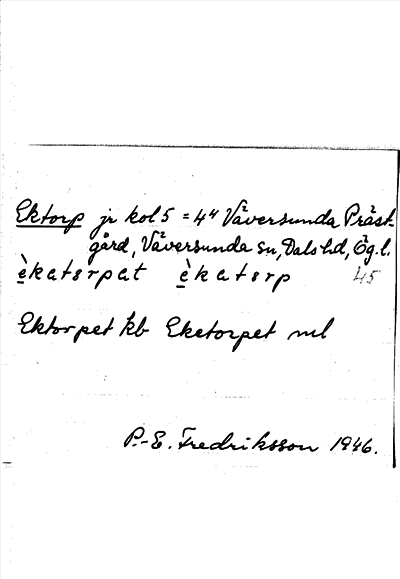 Ektorp jr kol 5 = 4⁴ Väversunda Präst-
gård, Väversunda sn, Dals hd, Ög.l.
è̱katɜrpat è̱katɜrp 45
Ektorpet kb Eketorpet ml
P.-E. Fredriksson 1946.